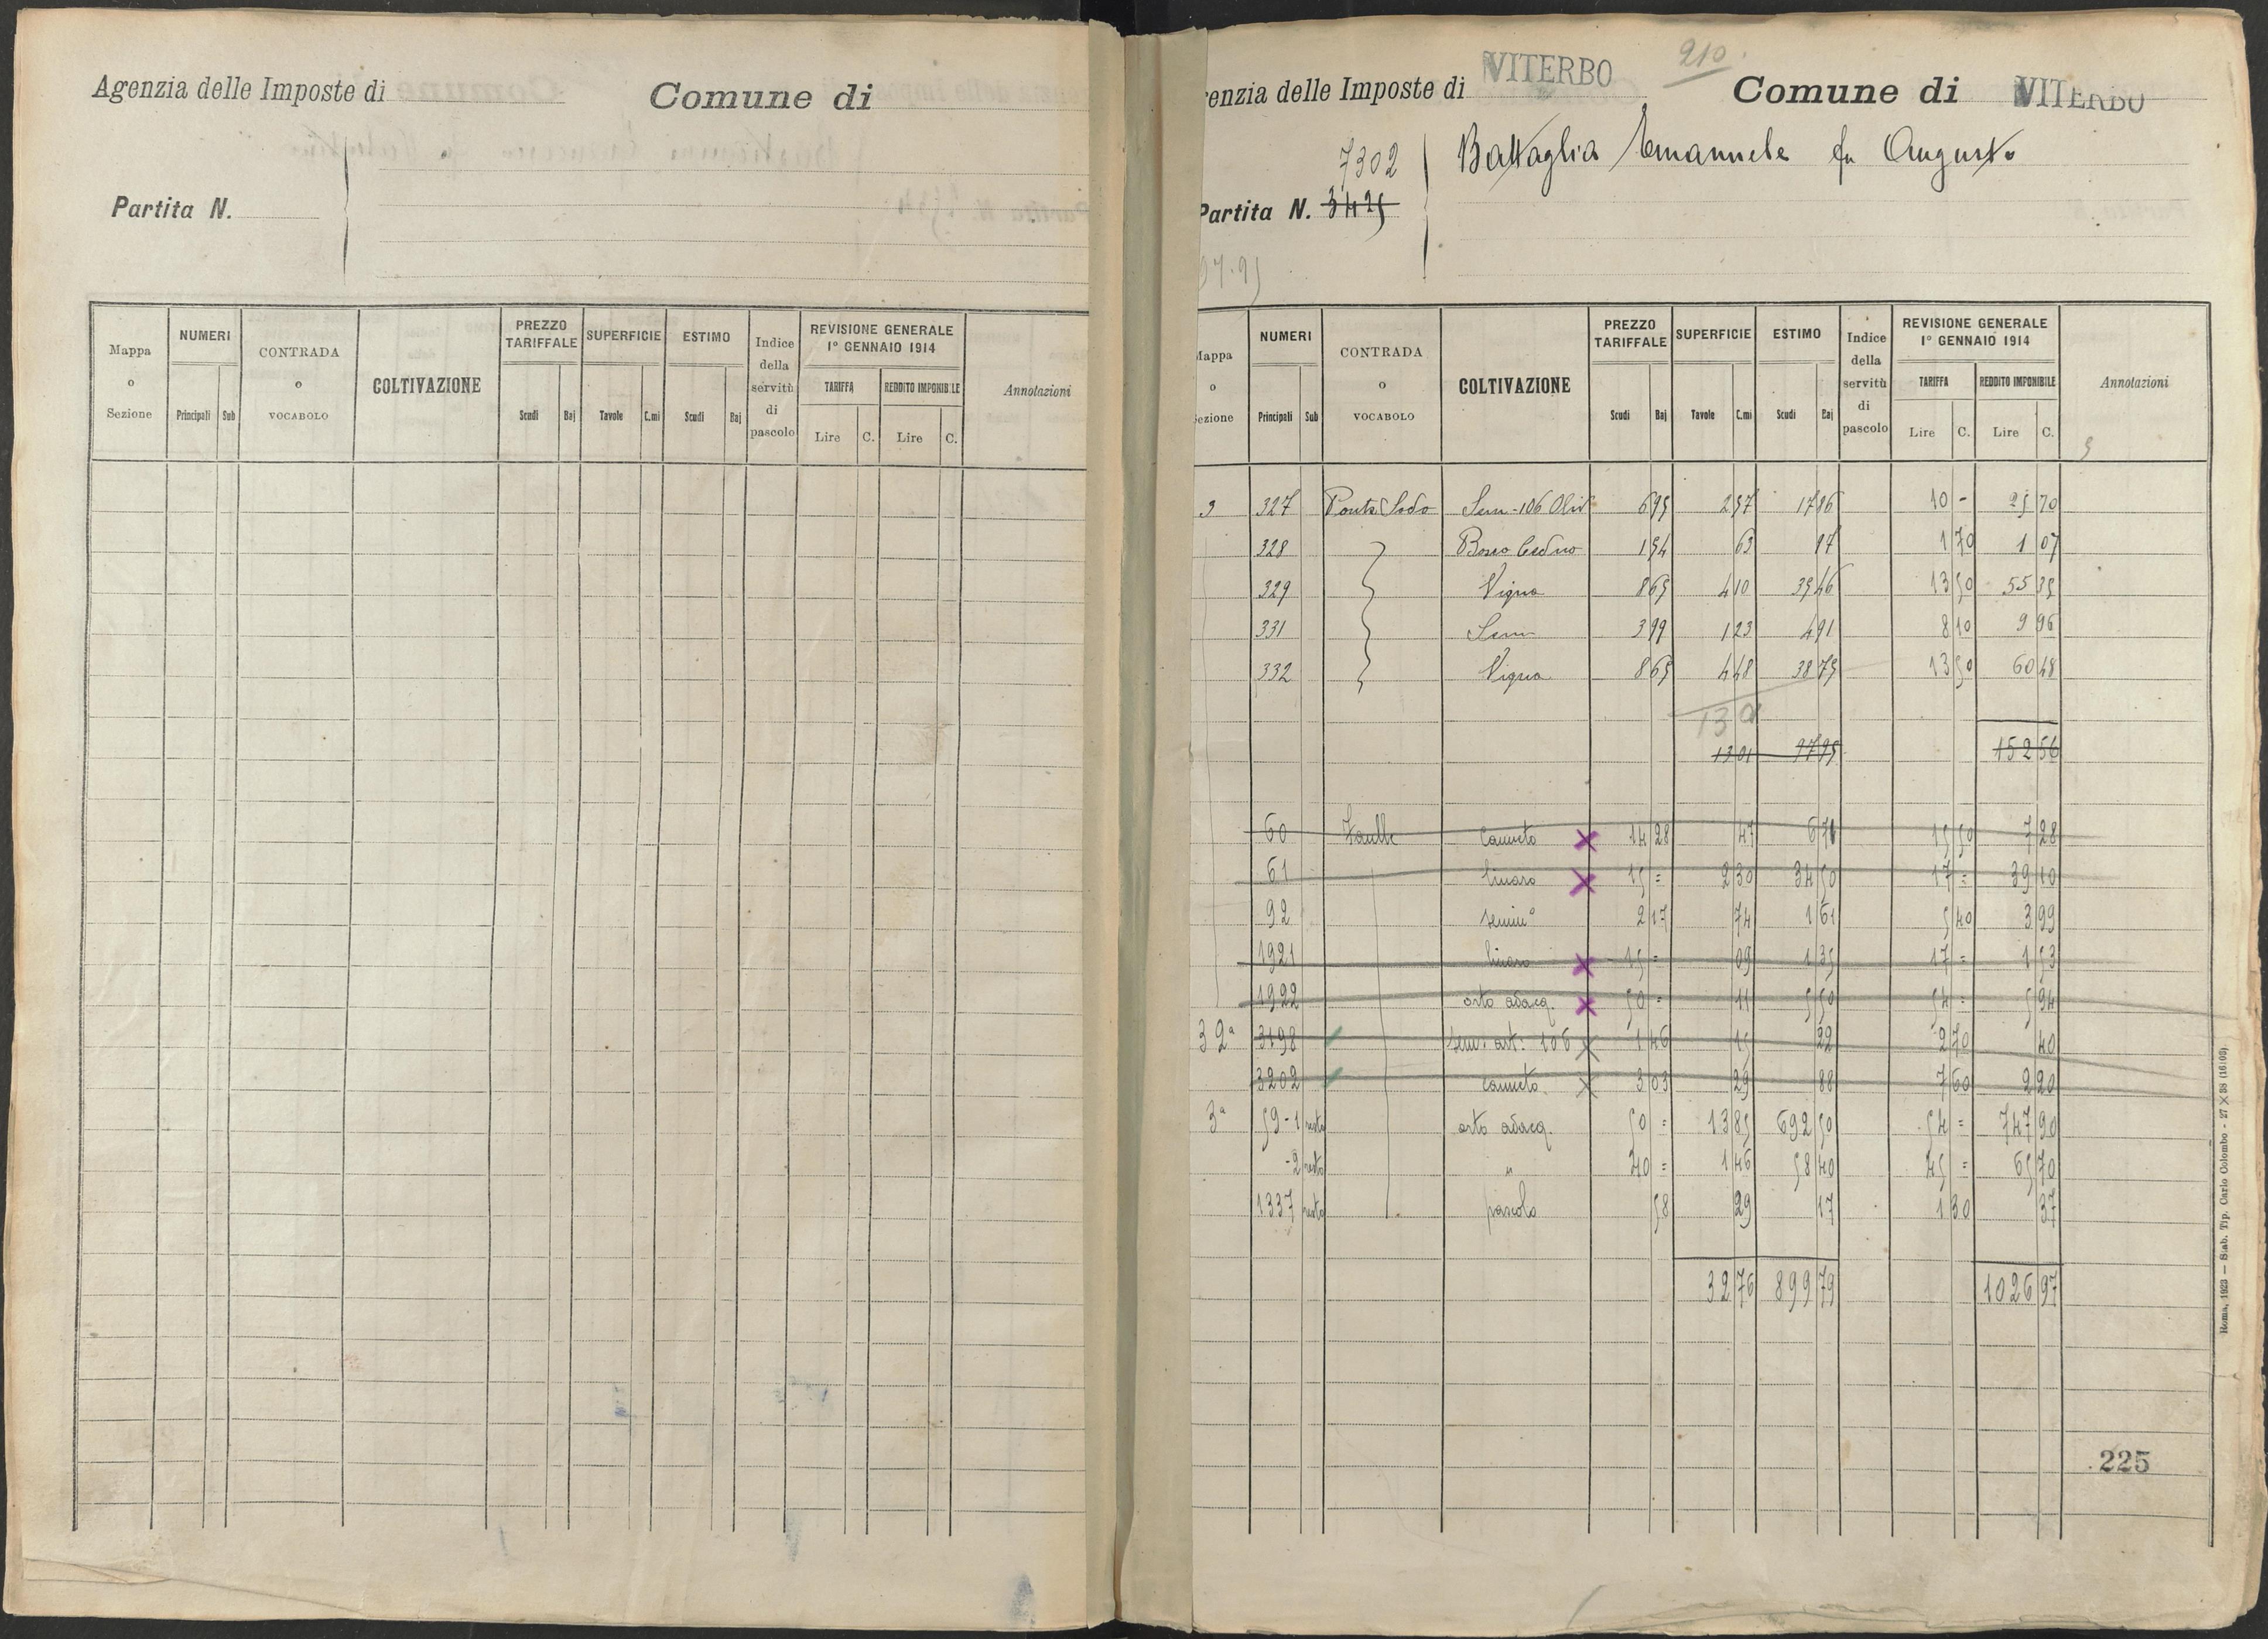 Agenzia delle Imposte di
Comune di
Partita N.
Mappa o Sezione
NUMERI
Principali Sub
CONTRADA o VOCABOLO
COLTIVAZIONE
PREZZO TARIFFALE
Scudi Baj
SUPERFICIE
Tavole C.mi
ESTIMO
Scudi Baj
Indice della servitù di pascolo
REVISIONE GENERALE 1º GENNAIO 1914
TARIFFA
Lire C.
REDDITO IMPONIBILE
Lire C.
Annotazioni
210
enzia delle Imposte di VITERBO
Comune di VITERBO
7302
Battaglia Emanuele fu Augusto
Partita N. 3425
Mappa o ezione
NUMERI
Principali Sub
CONTRADA o VOCABOLO
COLTIVAZIONE
PREZZO TARIFFALE
Scudi Baj
SUPERFICIE
Tavole C.mi
ESTIMO
Scudi Baj
Indice della servitù di pascolo
REVISIONE GENERALE 1º GENNAIO 1914
TARIFFA
Lire C.
REDDITO IMPONIBILE
Lire C.
Annotazioni
3 327 Ponte Sodo Sem-106 Oliv 6 95 2 57 17 86 10 - 25 70
328 Bosco Ceduo 1 54 63 97 1 70 1 07
329 Vigna 8 65 4 10 35 46 13 50 55 35
331 Sem 3 99 1 23 4 91 8 10 9 96
332 Vigna 8 65 4 48 38 75 13 50 60 48
13 01 97 95 152 56
60 Faulle canneto 14 28 47 6 71 15 50 7 28
61 linaro 15 = 2 30 34 50 17 = 39 10
92 semin° 2 17 74 1 61 5 40 3 99
1921 linaro 15 = 09 1 35 17 = 1 53
1922 orto adacq. 50 = 11 5 50 54 = 5 94
3 2ª 3198 sem. art: 106 1 46 15 22 2 70 40
3202 canneto. 3 03 29 88 7 60 2 20
3ª 59-1 resto orto adacq. 50 = 13 85 692 50 54 = 747 90
-2 resto " 40 = 1 46 58 40 45 = 65 70
1337 resto pascolo 58 29 17 1 30 37
32 76 899 79 1026 97
225
Roma, 1923 — Stab. Tip. Carlo Colombo - 27 × 38 (16106)